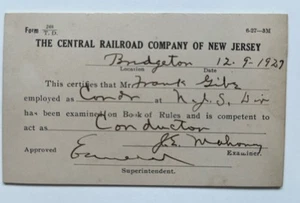 Form 249 T.D. 6-27-5M
THE CENTRAL RAILROAD COMPANY OF NEW JERSEY
Bridgeton 12-9-1929
Location Date
This certifies that Mr. Frank
employed as Condr at N.J.S. Div
has been examined on Book of Rules and is competent to
act as Conductor
J.E. Mahony
Approved Examiner.
Superintendent.